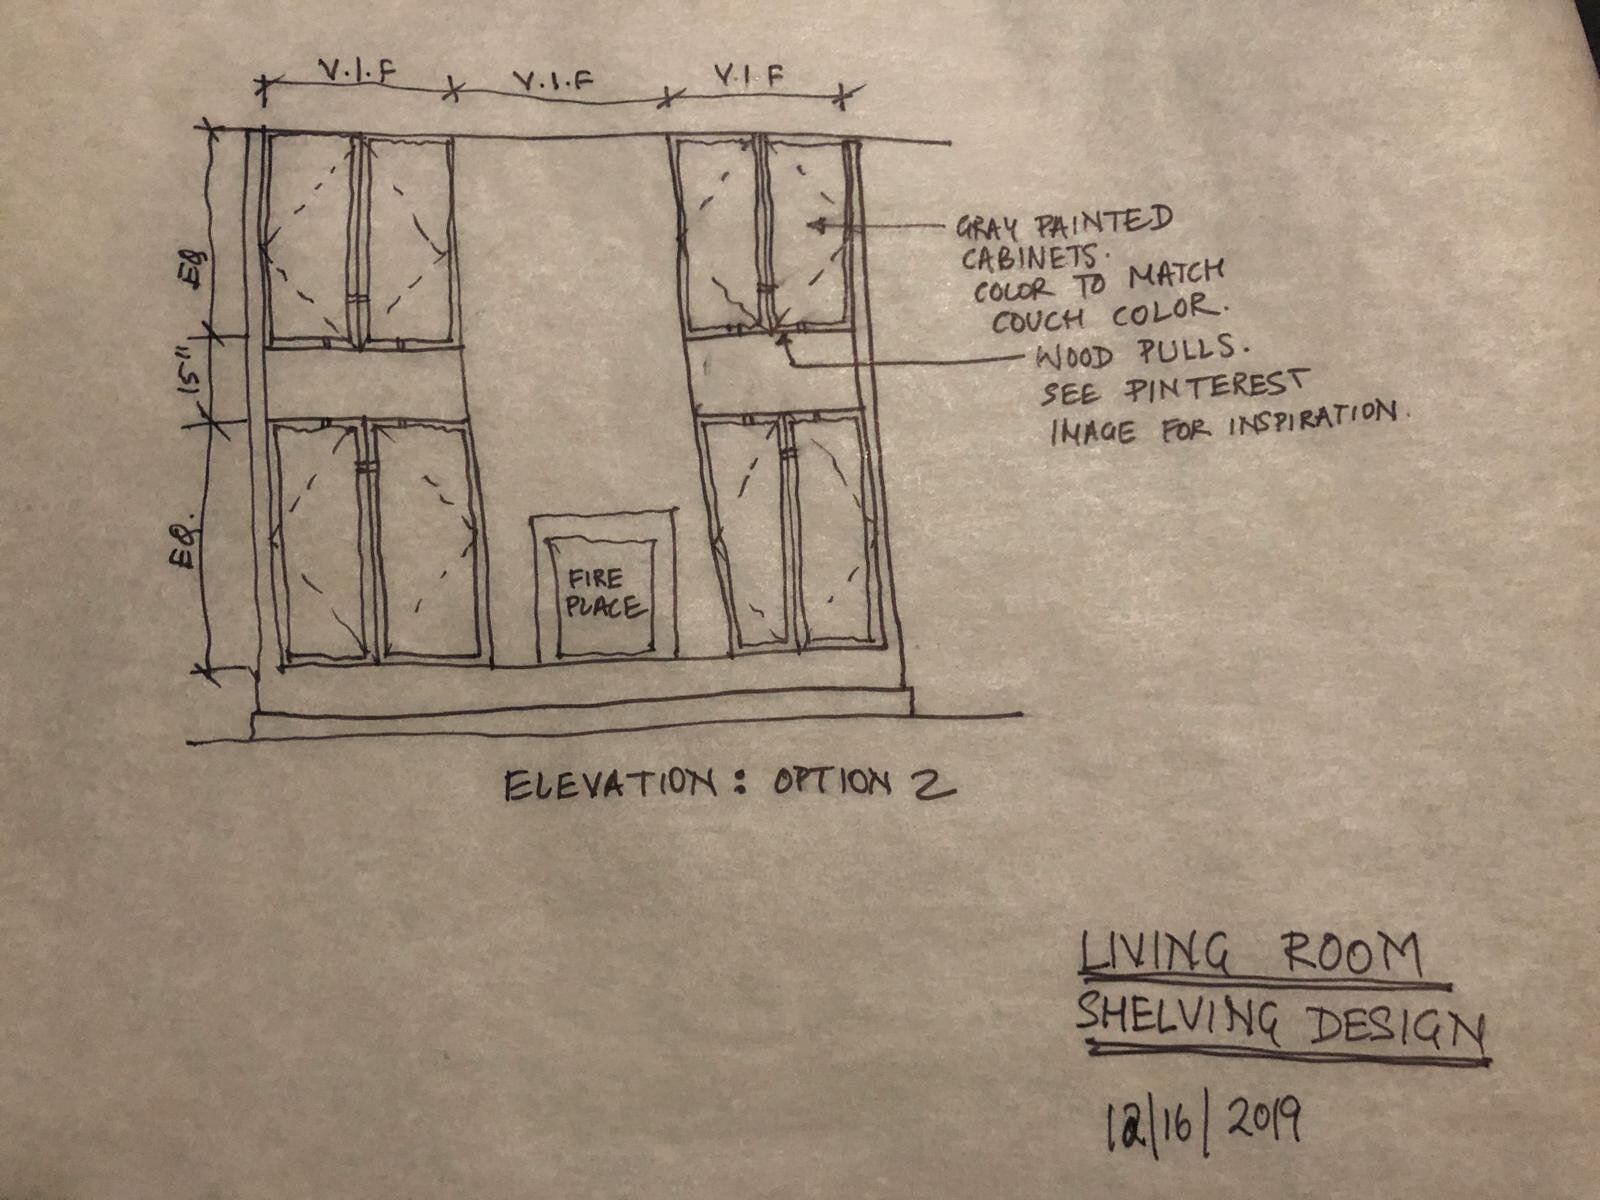 V.I.F
V.I.F
V.I.F
EQ
15"
EQ.
GRAY PAINTED
CABINETS.
COLOR TO MATCH
COUCH COLOR.
WOOD PULLS.
SEE PINTEREST
IMAGE FOR INSPIRATION.
FIRE
PLACE
ELEVATION: OPTION 2
LIVING ROOM
SHELVING DESIGN
12/16/2019